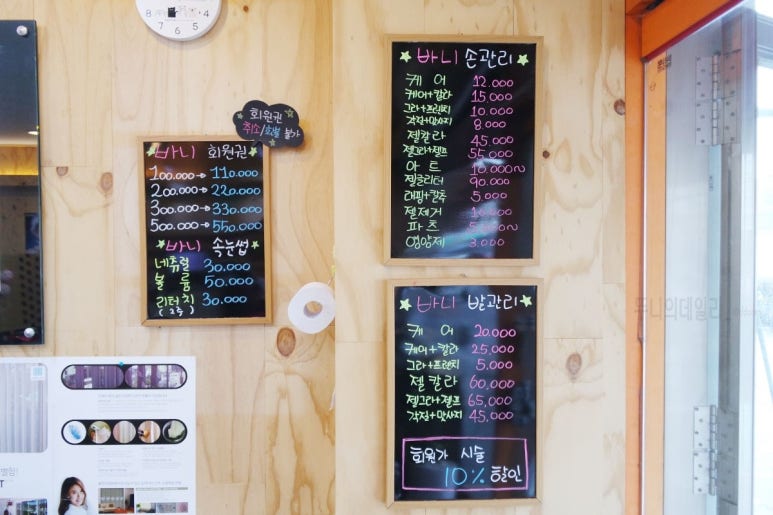 회원권
취소/환불 불가
바니 회원권
100.000→110.000
200.000→220.000
300.000→330.000
500.000→550.000
바니 속눈썹
네츄럴 30.000
볼륨 50.000
리터치 30.000
(2주)
바니 손관리
케어 12.000
케어+칼라 15.000
그라+프렌치 10.000
각질+맛사지 8.000
젤칼라 45.000
젤그라+젤프 55.000
아트 10.000~
젤글리터 90.000
랩핑+칼추 5.000
젤제거
파츠
영양제 3.000
바니 발관리
케어 20.000
케어+칼라 25.000
그라+프렌치 5.000
젤칼라 60,000
젤그라+젤프 65,000
각질+맛사지 45,000
회원가 시술
10% 할인
뚜니의데일리